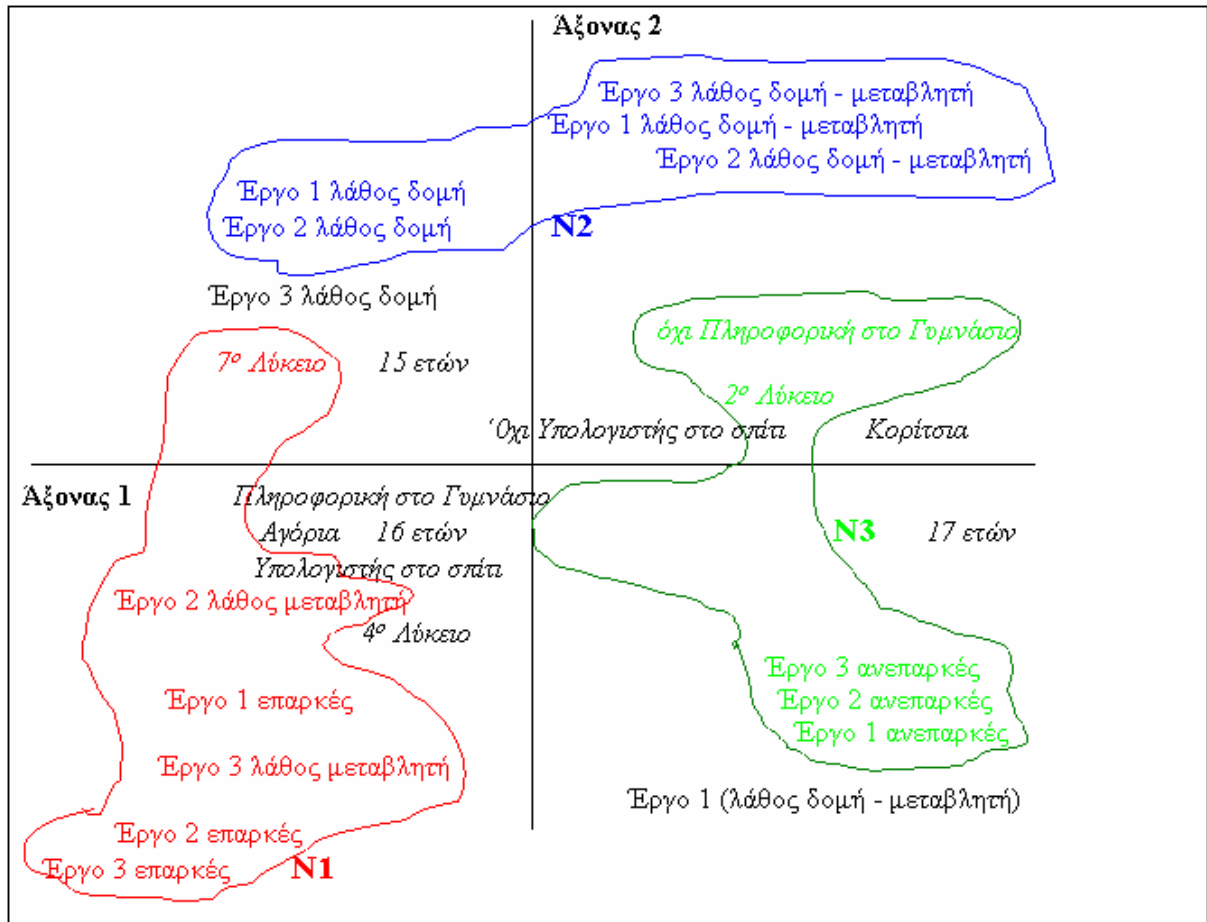 Άξονας 2
Έργο 3 λάθος δομή - μεταβλητή
Έργο 1 λάθος δομή - μεταβλητή
Έργο 2 λάθος δομή - μεταβλητή
Έργο 1 λάθος δομή
Έργο 2 λάθος δομή
N2
Έργο 3 λάθος δομή
όχι Πληροφορική στο Γυμνάσιο
7ο Λύκειο 15 ετών
2ο Λύκειο
Όχι Υπολογιστής στο σπίτι Κορίτσια
Άξονας 1 Πληροφορική στο Γυμνάσιο
Αγόρια 16 ετών N3 17 ετών
Υπολογιστής στο σπίτι
Έργο 2 λάθος μεταβλητή
4ο Λύκειο
Έργο 3 ανεπαρκές
Έργο 1 επαρκές Έργο 2 ανεπαρκές
Έργο 1 ανεπαρκές
Έργο 3 λάθος μεταβλητή
Έργο 1 (λάθος δομή - μεταβλητή)
Έργο 2 επαρκές
Έργο 3 επαρκές N1